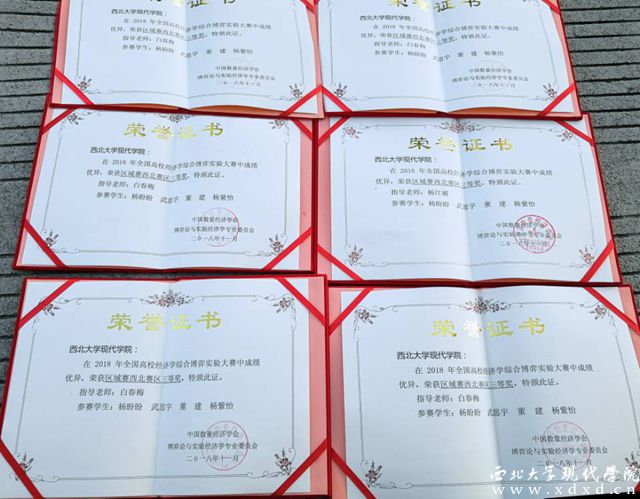 西北大学现代学院：
在 2018 年全国高校经济学综合博弈实验大赛中成绩
优异，荣获区域赛西北赛区三等奖，特颁此证。
指导老师：白春梅
参赛学生：杨盼盼 武思宇 董 建 杨紫怡
中国数量经济学会
博弈论与实验经济学专业委员会
二〇一八年十一月
西北大学现代学院：
在 2018 年全国高校经济学综合博弈实验大赛中成绩
优异，荣获区域赛西北赛区三等奖，特颁此证。
指导老师：白春梅
参赛学生：杨盼盼 武思宇 董 建 杨紫怡
中国数量经济学会
博弈论与实验经济学专业委员会
二〇一八年十一月
荣誉证书
西北大学现代学院：
在 2018 年全国高校经济学综合博弈实验大赛中成绩
优异，荣获区域赛西北赛区三等奖，特颁此证。
指导老师：白春梅
参赛学生：杨盼盼 武思宇 董 建 杨紫怡
中国数量经济学会
博弈论与实验经济学专业委员会
二〇一八年十一月
荣誉证书
西北大学现代学院：
在 2018 年全国高校经济学综合博弈实验大赛中成绩
优异，荣获区域赛西北赛区三等奖，特颁此证。
指导老师：杨江丽
参赛学生：杨盼盼 武思宇 董 建 杨紫怡
中国数量经济学会
博弈论与实验经济学专业委员会
二〇一八年十一月
荣誉证书
西北大学现代学院：
在 2018 年全国高校经济学综合博弈实验大赛中成绩
优异，荣获区域赛西北赛区三等奖，特颁此证。
指导老师：白春梅
参赛学生：杨盼盼 武思宇 董 建 杨紫怡
中国数量经济学会
博弈论与实验经济学专业委员会
二〇一八年十一月
荣誉证书
西北大学现代学院：
在 2018 年全国高校经济学综合博弈实验大赛中成绩
优异，荣获区域赛西北赛区三等奖，特颁此证。
指导老师：白春梅
参赛学生：杨盼盼 武思宇 董 建 杨紫怡
中国数量经济学会
博弈论与实验经济学专业委员会
二〇一八年十一月
西北大学现代学院
www.xdxd.cn